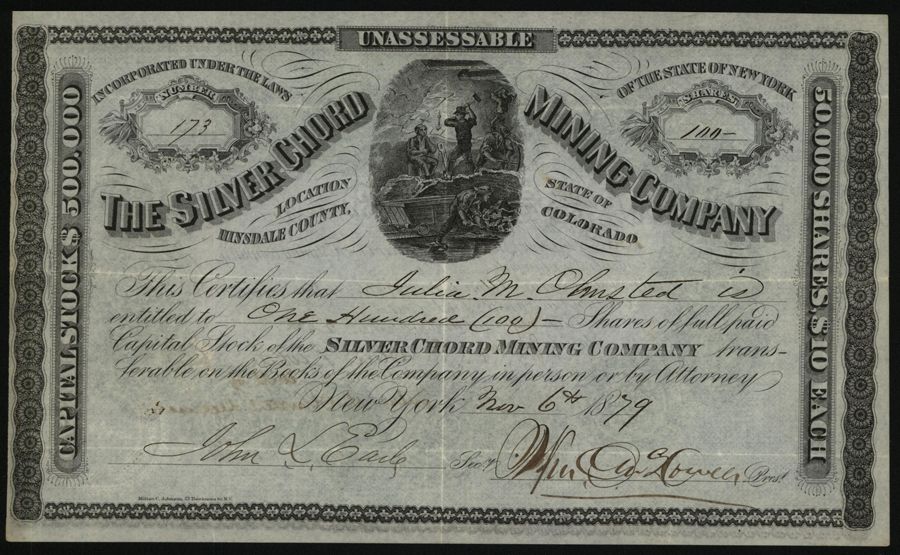 UNASSESSABLE
INCORPORATED UNDER THE LAWS
OF THE STATE OF NEW YORK
NUMBER
173
SHARES
100-
THE SILVER CHORD
MINING COMPANY
LOCATION
HINSDALE COUNTY,
STATE OF
COLORADO
CAPITAL STOCK $ 500,000
50,000 SHARES, $10 EACH
This Certifies that Julia M. Olmsted is
entitled to One Hundred (100) – Shares of full paid
Capital Stock of the SILVER CHORD MINING COMPANY trans-
ferable on the Books of the Company in person or by Attorney
New York Nov 6th 1879
John L. Earle Secy. Wm. Pres.